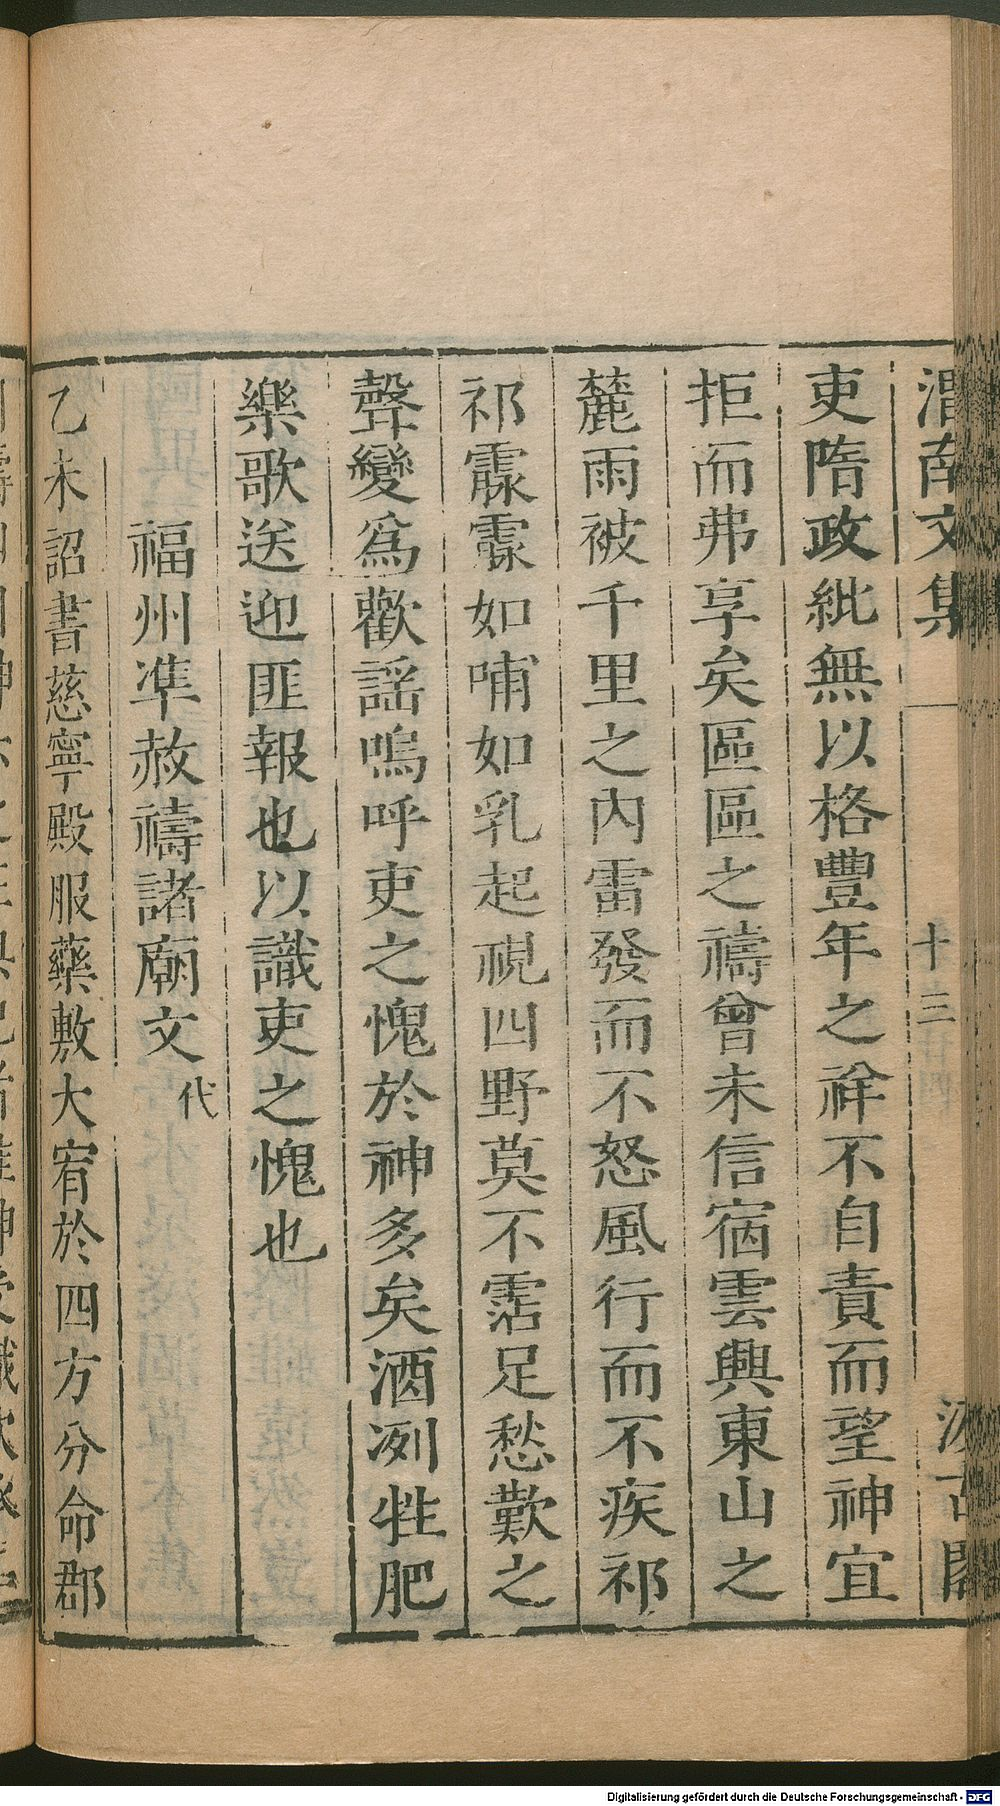 渭南文集 十三 汲古閣
吏隋政紕無以格豐年之祥不自責而望神宜
拒而弗享矣區區之禱曾未信宿雲興東山之
麓雨被千里之內雷發而不怒風行而不疾祁
祁霢霂如哺如乳起視四野莫不霑足愁歎之
聲變爲歡謡嗚呼吏之愧於神多矣酒冽牲肥
樂歌送迎匪報也以識吏之愧也
福州準赦禱諸廟文 代
乙未詔書慈寧殿服藥敷大宥於四方分命郡
Digitalisierung gefördert durch die Deutsche Forschungsgemeinschaft - DFG